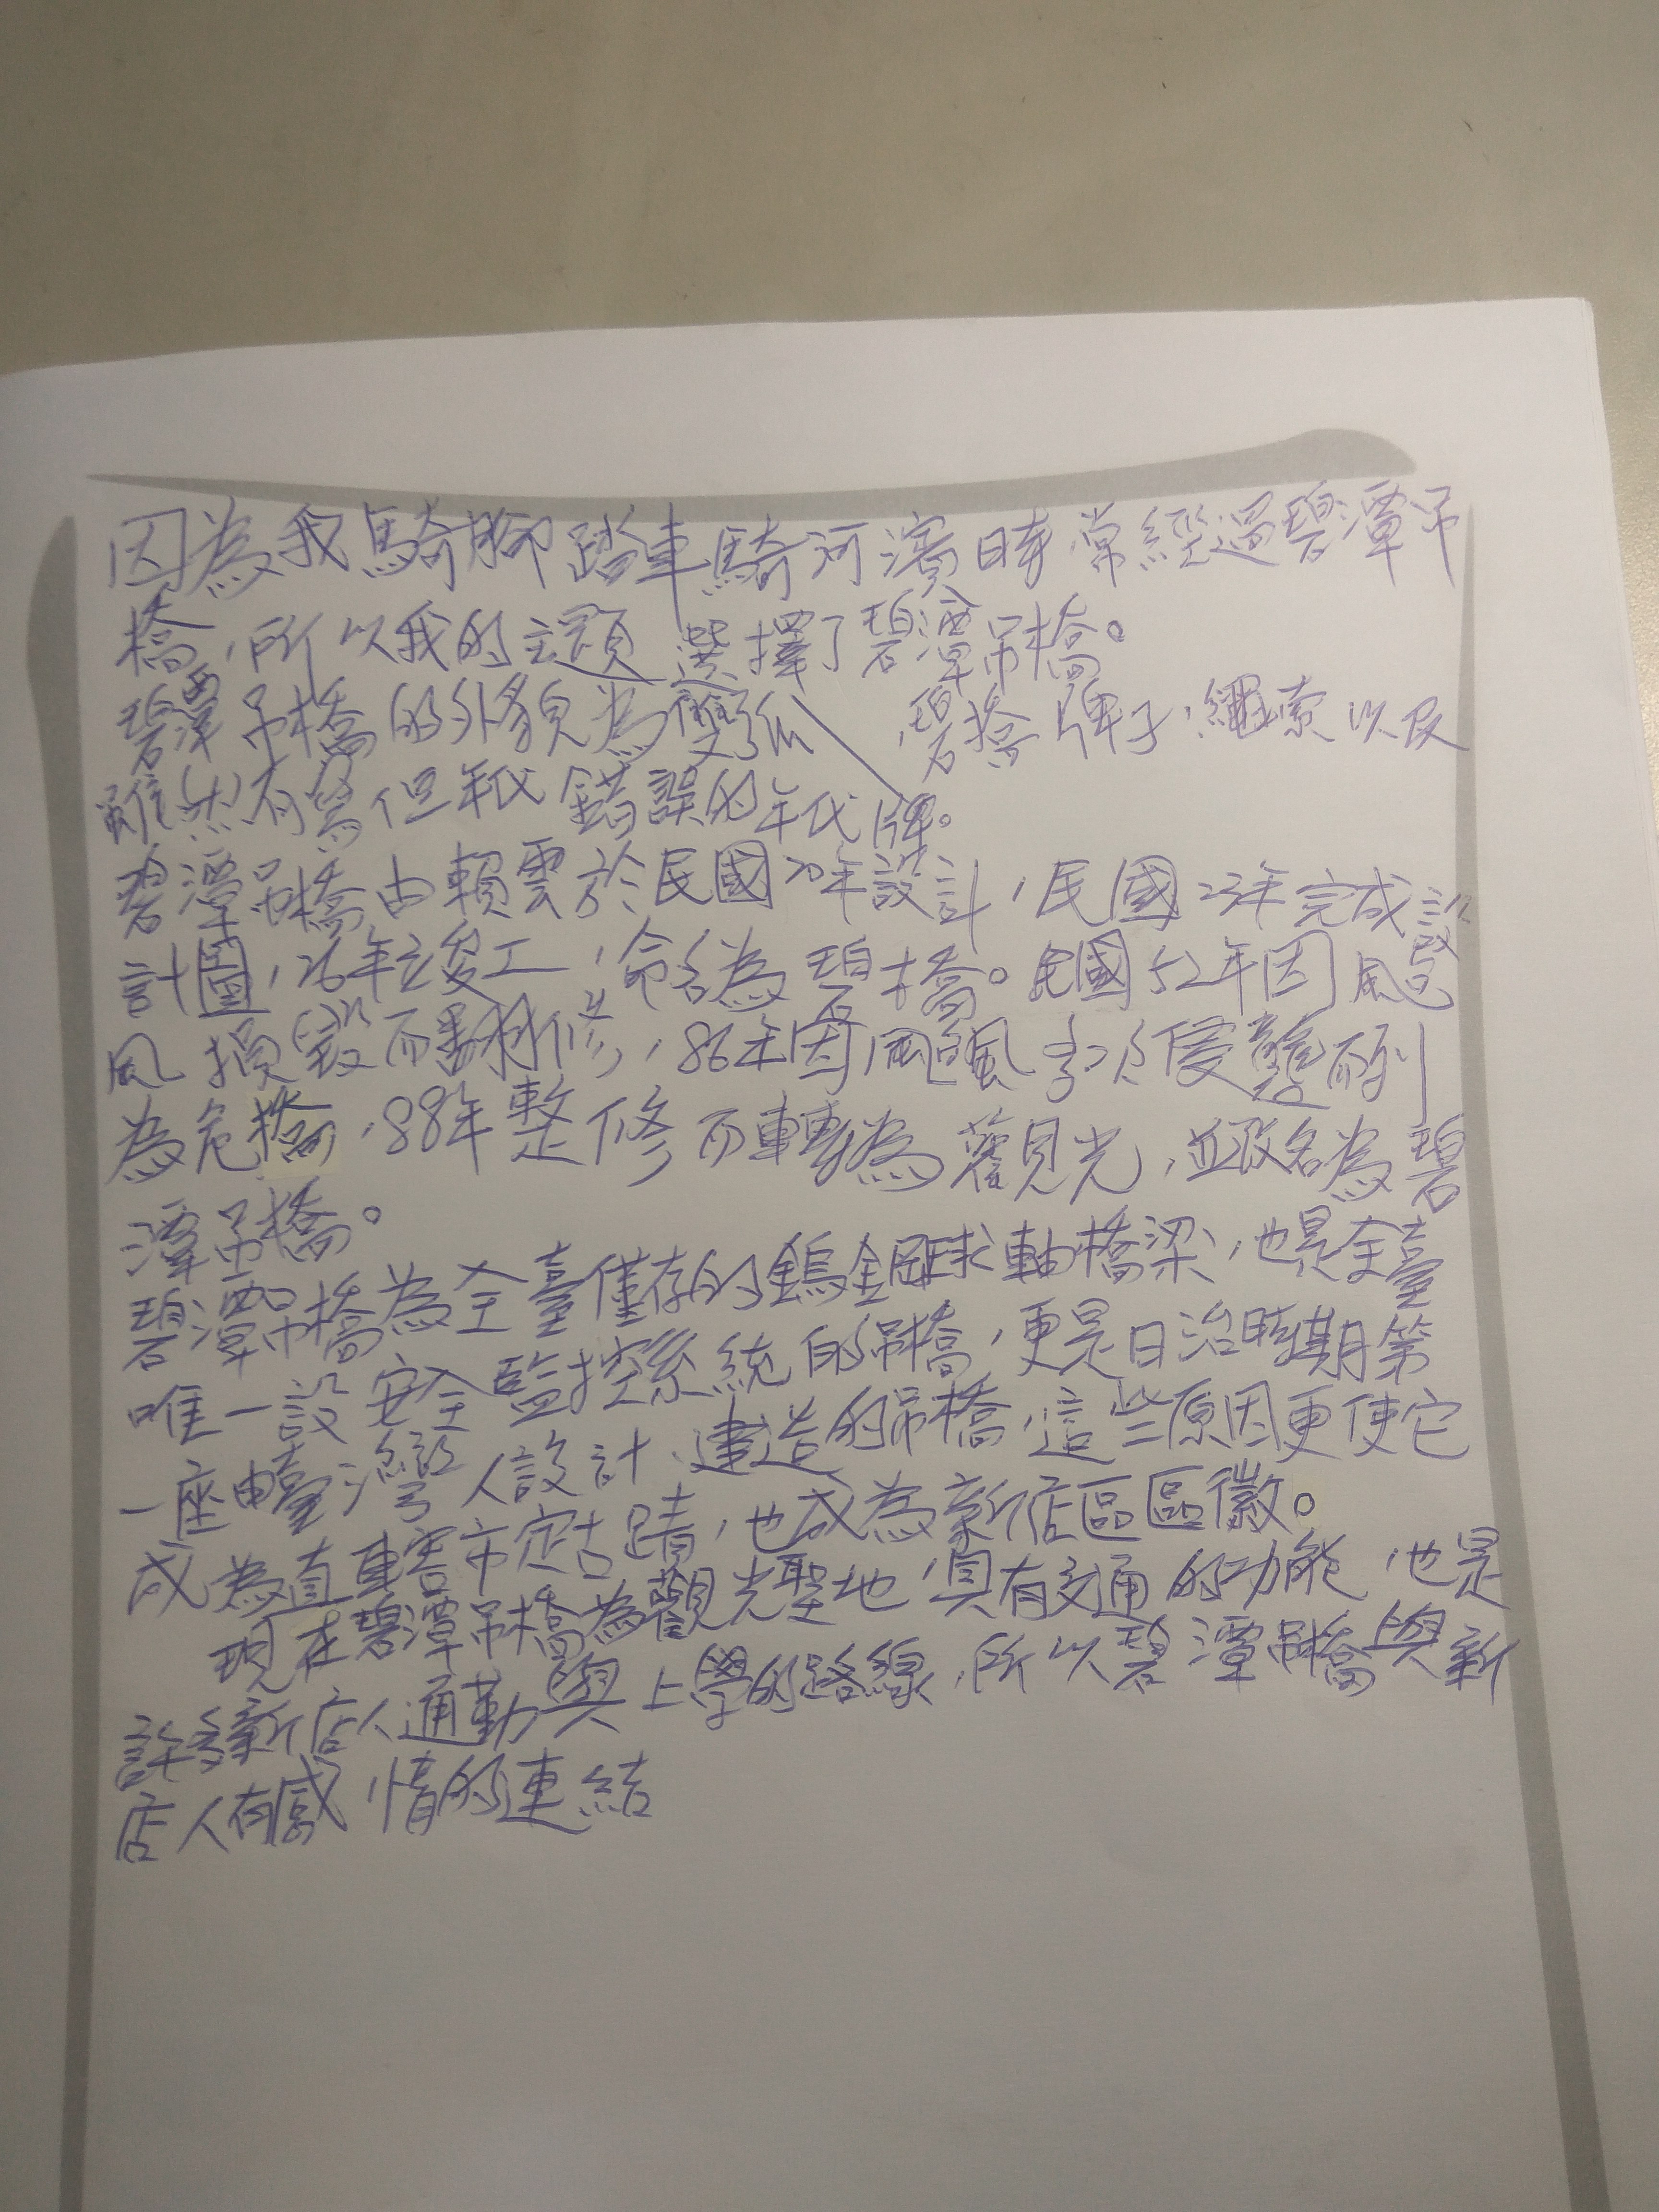 因為我騎腳踏車騎河濱時,常經過碧潭吊
橋,所以我的主題選擇了碧潭吊橋。
碧潭吊橋的外貌為雙弧、碧橋牌子、繩索以及
雖然有寫但年代錯誤的年代牌。
碧潭吊橋由賴雲於民國20年設計,民國23年完成設
計圖,26年竣工,命名為碧橋。民國52年因颱
風損毀而翻修,86年因颱風多次侵襲而列
為危橋,88年整修而轉為觀光,並改名為碧
潭吊橋。
碧潭吊橋為全臺僅存的鎢金鋼球軸橋梁,也是全臺
唯一設安全監控系統的吊橋,更是日治時期第
一座由臺灣人設計、建造的吊橋,這些原因更使它
成為直轄市定古蹟,也成為新店區區徽。
現在碧潭吊橋為觀光聖地,具有交通的功能,也是
許多新店人通勤與上學的路線,所以碧潭吊橋與新
店人有感情的連結